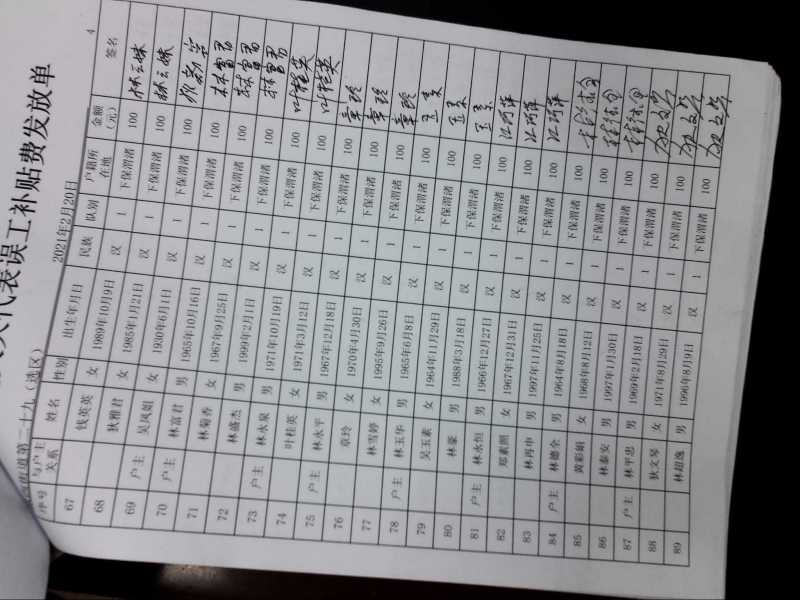 代表误工补贴费发放单
街道第二十九(选区) 2021年2月20日 4
序号 与户主关系 姓名 性别 出生年月日 民族 队别 户籍所在地 金额(元) 签名
67 钱英英 女 1989年10月9日 汉 1 下保渭渚 100 林云妹
68 狄雅君 女 1985年1月21日 汉 1 下保渭渚 100 林云妹
69 户主 吴凤姐 女 1930年6月1日 汉 1 下保渭渚 100
70 户主 林富君 男 1965年10月16日 汉 1 下保渭渚 100 林富君
71 林菊香 女 1967年9月25日 汉 1 下保渭渚 100 林富君
72 林盛杰 男 1999年2月1日 汉 1 下保渭渚 100 林富君
73 户主 林永泉 男 1971年10月19日 汉 1 下保渭渚 100 叶桂英
74 叶桂英 女 1971年3月12日 汉 1 下保渭渚 100 叶桂英
75 户主 林永平 男 1967年12月18日 汉 1 下保渭渚 100 章玲
76 章玲 女 1970年4月30日 汉 1 下保渭渚 100 章玲
77 林雪婷 女 1995年9月26日 汉 1 下保渭渚 100 章玲
78 户主 林玉华 男 1965年6月8日 汉 1 下保渭渚 100
79 吴玉素 女 1964年11月29日 汉 1 下保渭渚 100
80 林豪 男 1988年3月18日 汉 1 下保渭渚 100
81 户主 林永恒 男 1966年12月27日 汉 1 下保渭渚 100
82 郑素照 女 1967年12月31日 汉 1 下保渭渚 100
83 林再申 男 1997年11月25日 汉 1 下保渭渚 100
84 户主 林德全 男 1964年8月18日 汉 1 下保渭渚 100
85 黄彩娟 女 1968年8月12日 汉 1 下保渭渚 100
86 林泰安 男 1997年1月30日 汉 1 下保渭渚 100
87 户主 林平忠 男 1969年2月18日 汉 1 下保渭渚 100 狄文琴
88 狄文琴 女 1971年8月29日 汉 1 下保渭渚 100 狄文琴
89 林超逸 男 1996年8月9日 汉 1 下保渭渚 100 狄文琴